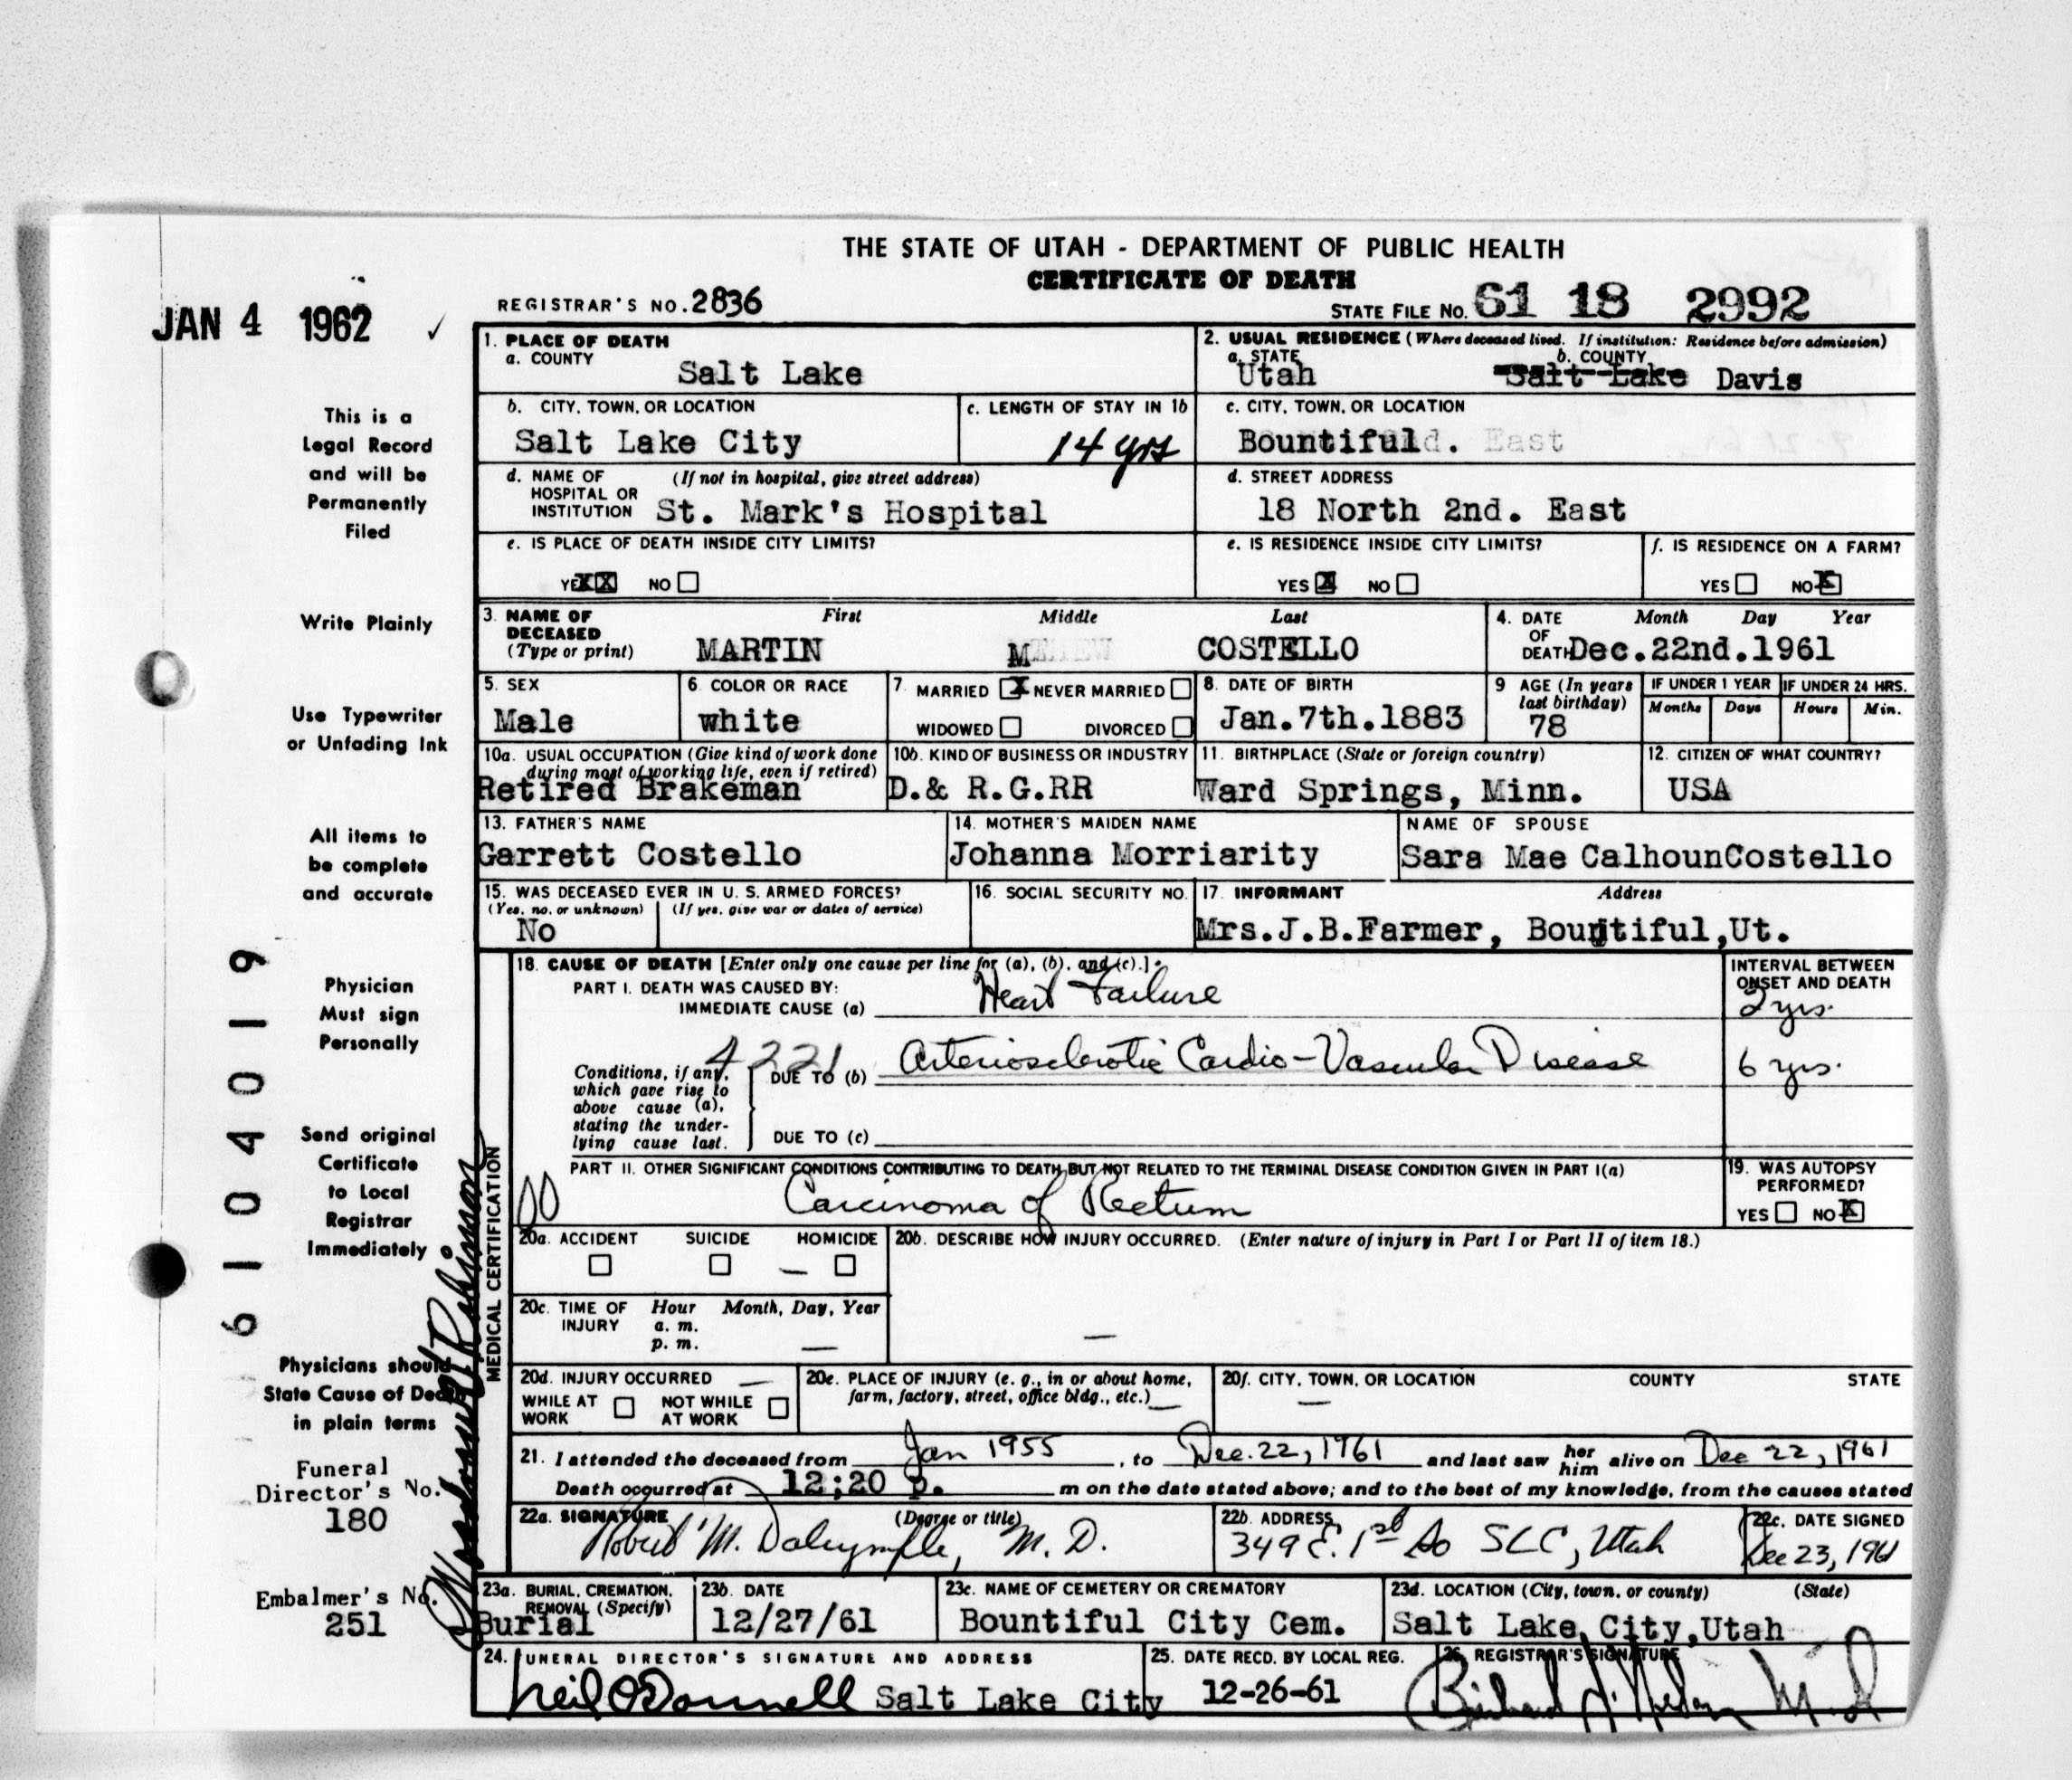 THE STATE OF UTAH - DEPARTMENT OF PUBLIC HEALTH
CERTIFICATE OF DEATH
JAN 4 1962 ✓
REGISTRAR'S NO. 2836
STATE FILE NO. 61 18 2992
1. PLACE OF DEATH
a. COUNTY
Salt Lake
2. USUAL RESIDENCE (Where deceased lived. If institution: Residence before admission)
a. STATE b. COUNTY
Utah Salt Lake Davis
b. CITY, TOWN, OR LOCATION
Salt Lake City
c. LENGTH OF STAY IN 1b
14 yrs
c. CITY, TOWN, OR LOCATION
Bountiful d. East
d. NAME OF (If not in hospital, give street address)
HOSPITAL OR
INSTITUTION St. Mark's Hospital
d. STREET ADDRESS
18 North 2nd. East
e. IS PLACE OF DEATH INSIDE CITY LIMITS?
YES X X NO
e. IS RESIDENCE INSIDE CITY LIMITS?
YES X NO
f. IS RESIDENCE ON A FARM?
YES NO X
3. NAME OF DECEASED (Type or print)
First Middle Last
MARTIN M COSTELLO
4. DATE OF DEATH Month Day Year
Dec.22nd.1961
5. SEX
Male
6. COLOR OR RACE
white
7. MARRIED X NEVER MARRIED
WIDOWED DIVORCED
8. DATE OF BIRTH
Jan.7th.1883
9 AGE (In years last birthday)
78
IF UNDER 1 YEAR IF UNDER 24 HRS.
Months Days Hours Min.
10a. USUAL OCCUPATION (Give kind of work done
during most of working life, even if retired)
Retired Brakeman
10b. KIND OF BUSINESS OR INDUSTRY
D.& R.G.RR
11. BIRTHPLACE (State or foreign country)
Ward Springs, Minn.
12. CITIZEN OF WHAT COUNTRY?
USA
13. FATHER'S NAME
Garrett Costello
14. MOTHER'S MAIDEN NAME
Johanna Morriarity
NAME OF SPOUSE
Sara Mae CalhounCostello
15. WAS DECEASED EVER IN U. S. ARMED FORCES?
(Yes, no, or unknown) (If yes, give war or dates of service)
No
16. SOCIAL SECURITY NO.
17. INFORMANT Address
Mrs.J.B.Farmer, Bountiful,Ut.
MEDICAL CERTIFICATION
18. CAUSE OF DEATH [Enter only one cause per line for (a), (b), and (c).]
PART I. DEATH WAS CAUSED BY:
IMMEDIATE CAUSE (a) Heart Failure
INTERVAL BETWEEN
ONSET AND DEATH
2 yrs.
4221
Conditions, if any,
which gave rise to
above cause (a),
stating the under-
lying cause last.
DUE TO (b) Arteriosclerotic Cardio-Vascular Disease
6 yrs.
DUE TO (c)
PART II. OTHER SIGNIFICANT CONDITIONS CONTRIBUTING TO DEATH BUT NOT RELATED TO THE TERMINAL DISEASE CONDITION GIVEN IN PART I(a)
Carcinoma of Rectum
19. WAS AUTOPSY
PERFORMED?
YES NO X
20a. ACCIDENT SUICIDE HOMICIDE
20b. DESCRIBE HOW INJURY OCCURRED. (Enter nature of injury in Part I or Part II of item 18.)
20c. TIME OF INJURY Hour Month, Day, Year
a. m.
p. m.
20d. INJURY OCCURRED
WHILE AT WORK NOT WHILE AT WORK
20e. PLACE OF INJURY (e. g., in or about home,
farm, factory, street, office bldg., etc.)
20f. CITY, TOWN, OR LOCATION COUNTY STATE
21. I attended the deceased from Jan 1955, to Dec. 22, 1961 and last saw her him alive on Dec 22, 1961
Death occurred at 12;20 p. m on the date stated above; and to the best of my knowledge, from the causes stated
22a. SIGNATURE (Degree or title)
Robert M. Dalrymple, M. D.
22b. ADDRESS
349 E. 1st So SLC, Utah
22c. DATE SIGNED
Dec 23, 1961
23a. BURIAL, CREMATION,
REMOVAL (Specify)
Burial
23b. DATE
12/27/61
23c. NAME OF CEMETERY OR CREMATORY
Bountiful City Cem.
23d. LOCATION (City, town, or county) (State)
Salt Lake City,Utah
24. FUNERAL DIRECTOR'S SIGNATURE AND ADDRESS
Neil O'Donnell Salt Lake City
25. DATE RECD. BY LOCAL REG.
12-26-61
26. REGISTRAR'S SIGNATURE
This is a
Legal Record
and will be
Permanently
Filed
Write Plainly
Use Typewriter
or Unfading Ink
All items to
be complete
and accurate
Physician
Must sign
Personally
Send original
Certificate
to Local
Registrar
Immediately
Physicians should
State Cause of Death
in plain terms
Funeral
Director's No.
180
Embalmer's No.
251
6104019